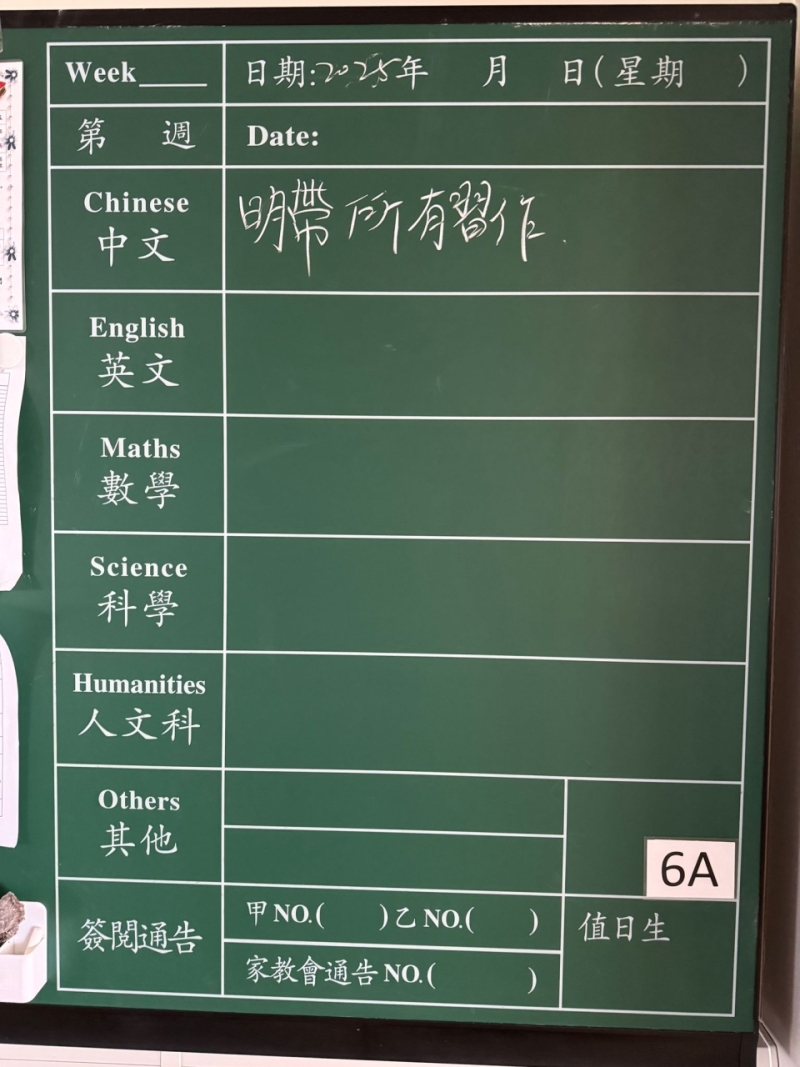 Week____ 日期:2025年 月 日(星期 )
第 週 Date:
Chinese 明帶所有習作.
中文
English
英文
Maths
數學
Science
科學
Humanities
人文科
Others
其他
6A
簽閱通告 甲NO.( )乙NO.( ) 值日生
家教會通告NO.( )